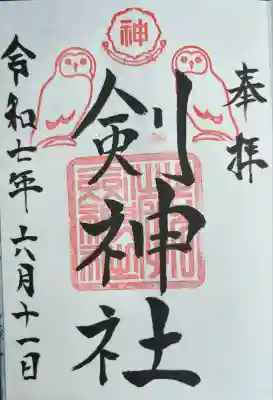 奉拝
神
剣神社
令和七年 六月十一日